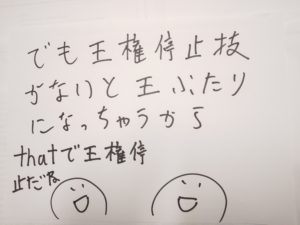 でも王権停止技
がないと王ぶたり
になっちゃうから
thatで王権停
止だね